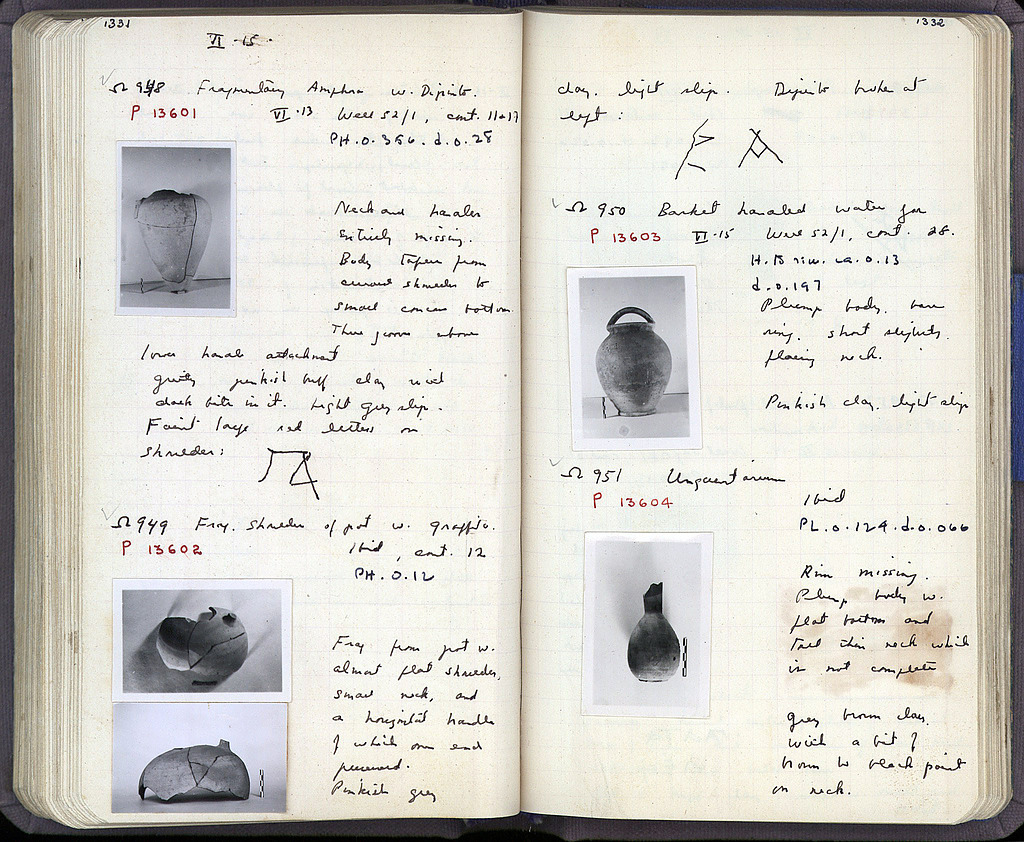 1331
VI · 15 ·
Ω 948 Fragmentary Amphora w. Dipinto.
P 13601 VI · 13 Well S2/1, cont. 11+17
PH. 0.366 · d. 0.28
Neck and handles
entirely missing.
Body tapers from
curved shoulder to
small concave bottom.
Three grooves above
lower handle attachment
gritty pinkish buff clay with
dark bits in it. Light grey slip.
Faint large red letters on
shoulder:
Ω 949 Frag. shoulder of pot w. graffito.
P 13602 Ibid, cont. 12
PH. 0.12
Frag from pot w.
almost flat shoulder,
small neck, and
a horizontal handle
of which one end
preserved.
Pinkish grey
1332
clay. light slip. Dipinto broken at
left:
Ω 950 Basket handled water jar
P 13603 VI · 15 Well S2/1, cont. 28.
H. to rim. ca. 0.13
d. 0.197
Plump body, base
ring. short slightly
flaring neck.
Pinkish clay, light slip
Ω 951 Unguentarium
P 13604 Ibid
PL. 0.124 · d. 0.066
Rim missing.
Plump body w.
flat bottom and
tall thin neck which
is not complete
grey brown clay.
with a bit of
brown to black paint
on neck.